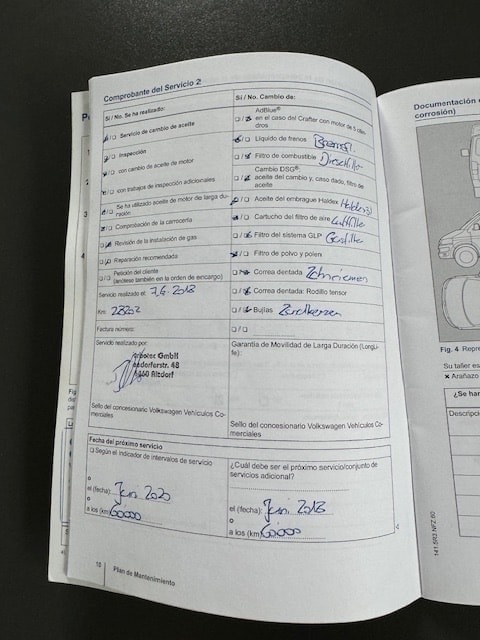 Comprobante del Servicio 2
Sí / No. Se ha realizado:
Servicio de cambio de aceite
Inspección
con cambio de aceite de motor
con trabajos de inspección adicionales
Se ha utilizado aceite de motor de larga duración
Comprobación de la carrocería
Revisión de la instalación de gas
Reparación recomendada
Petición del cliente
(anótese también en la orden de encargo)
Servicio realizado el: 7.6.2018
Km:
Factura número:
Servicio realizado por:
GmbH
48
Altdorf
Sello del concesionario Volkswagen Vehículos Comerciales
Sí / No. Cambio de:
AdBlue®
en el caso del Crafter con motor de 5 cilindros
Líquido de frenos
Filtro de combustible
Cambio DSG®:
aceite del cambio y, caso dado, filtro de
aceite
Aceite del embrague Haldex Haldex
Cartucho del filtro de aire Luftfilter
Filtro del sistema GLP Gasfilter
Filtro de polvo y polen
Correa dentada Zahnriemen
Correa dentada: Rodillo tensor
Bujías Zündkerzen
Garantía de Movilidad de Larga Duración (LongLife):
Sello del concesionario Volkswagen Vehículos Comerciales
Fecha del próximo servicio
Según el indicador de intervalos de servicio
o
el (fecha): Juni 2020
o
a los (km) 60000
¿Cuál debe ser el próximo servicio/conjunto
de servicios adicional?
el (fecha): Juni 2018
o
a los (km) 60000
10 Plan de Mantenimiento
Documentación
corrosión)
Fig. 4
Su taller
Arañazo
¿Se han
Descripción
141.5R3.NFZ.60